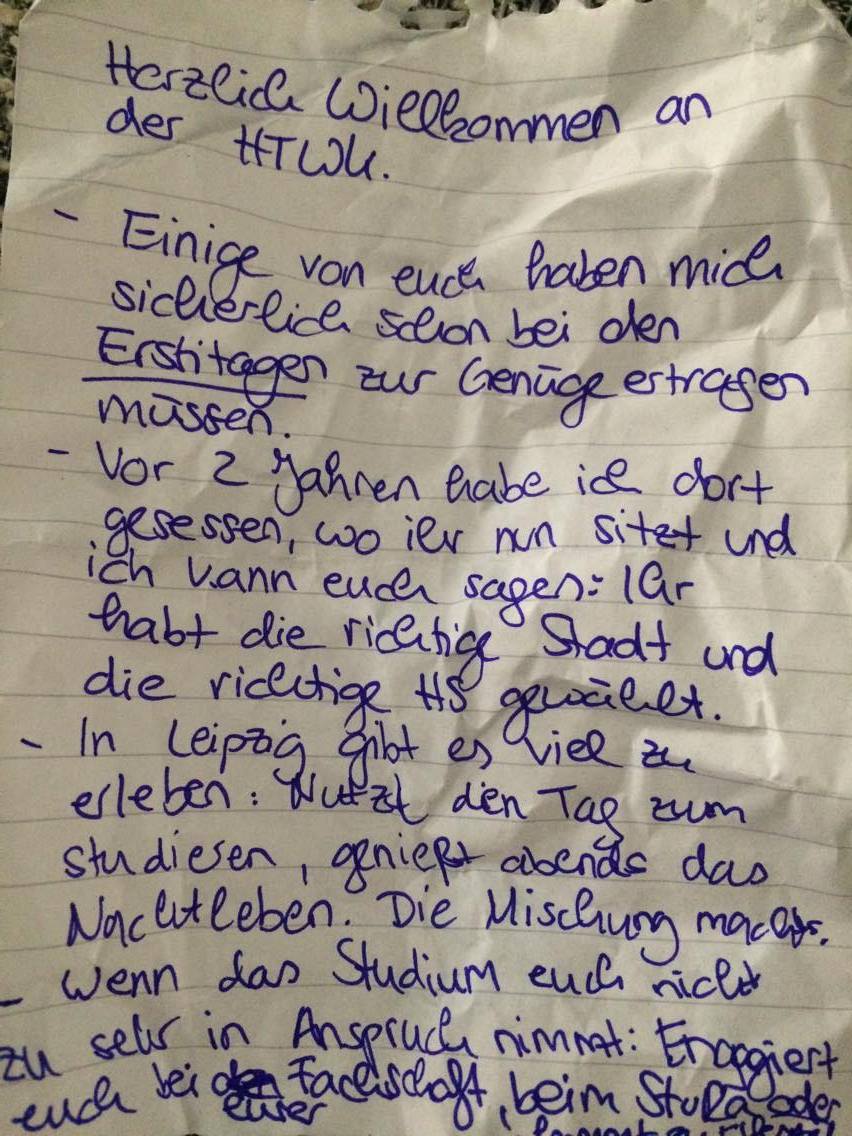 Herzlich Willkommen an
der HTWK.
- Einige von euch haben mich
sicherlich schon bei den
Erstitagen zur Genüge ertragen
müssen.
- Vor 2 Jahren habe ich dort
gesessen, wo ihr nun sitzt und
ich kann euch sagen: Ihr
habt die richtige Stadt und
die richtige HS gewählt.
- In Leipzig gibt es viel zu
erleben: Nutzt den Tag zum
studieren, genießt abends das
Nachtleben. Die Mischung machts.
- Wenn das Studium euch nicht
zu sehr in Anspruch nimmt: Engagiert
euch bei eurer Fachschaft, beim StuRa oder